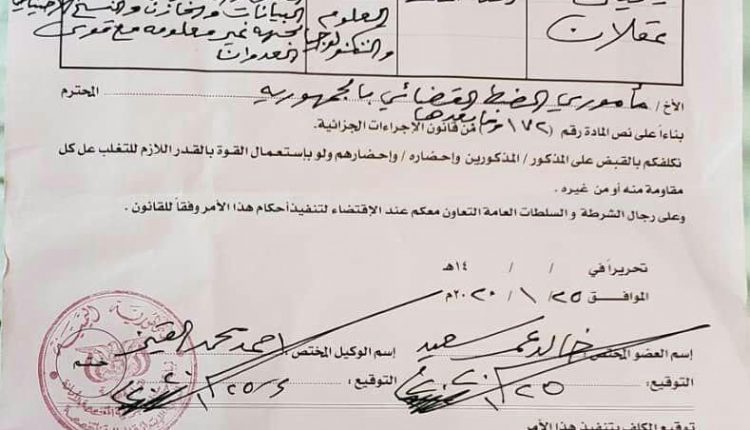 عقلان
العلوم والتكنولوجيا
البيانات والخازن والنسخ الاحتياطي
لجهة غير معلومه مع قوى
العدوان
الأخ / مأموري الضبط القضائي بالجمهورية المحترم
بناءاً على نص المادة رقم (١٧٢ وما بعدها) من قانون الإجراءات الجزائية.
نكلفكم بالقبض على المذكور / المذكورين وإحضاره / وإحضارهم ولو بإستعمال القوة بالقدر اللازم للتغلب عل كل
مقاومة منه أو من غيره .
وعلى رجال الشرطة و السلطات العامة التعاون معكم عند الإقتضاء لتنفيذ أحكام هذا الأمر وفقاً للقانون .
تحريراً في / / ١٤هـ
الموافق ٢٥ / ١ / ٢٠٢٠م
إسم العضو المختص : خالد عمر سعيد إسم الوكيل المختص : احمد محمد
التوقيع : التوقيع :
توقيع المكلف بتنفيذ هذا الأمر